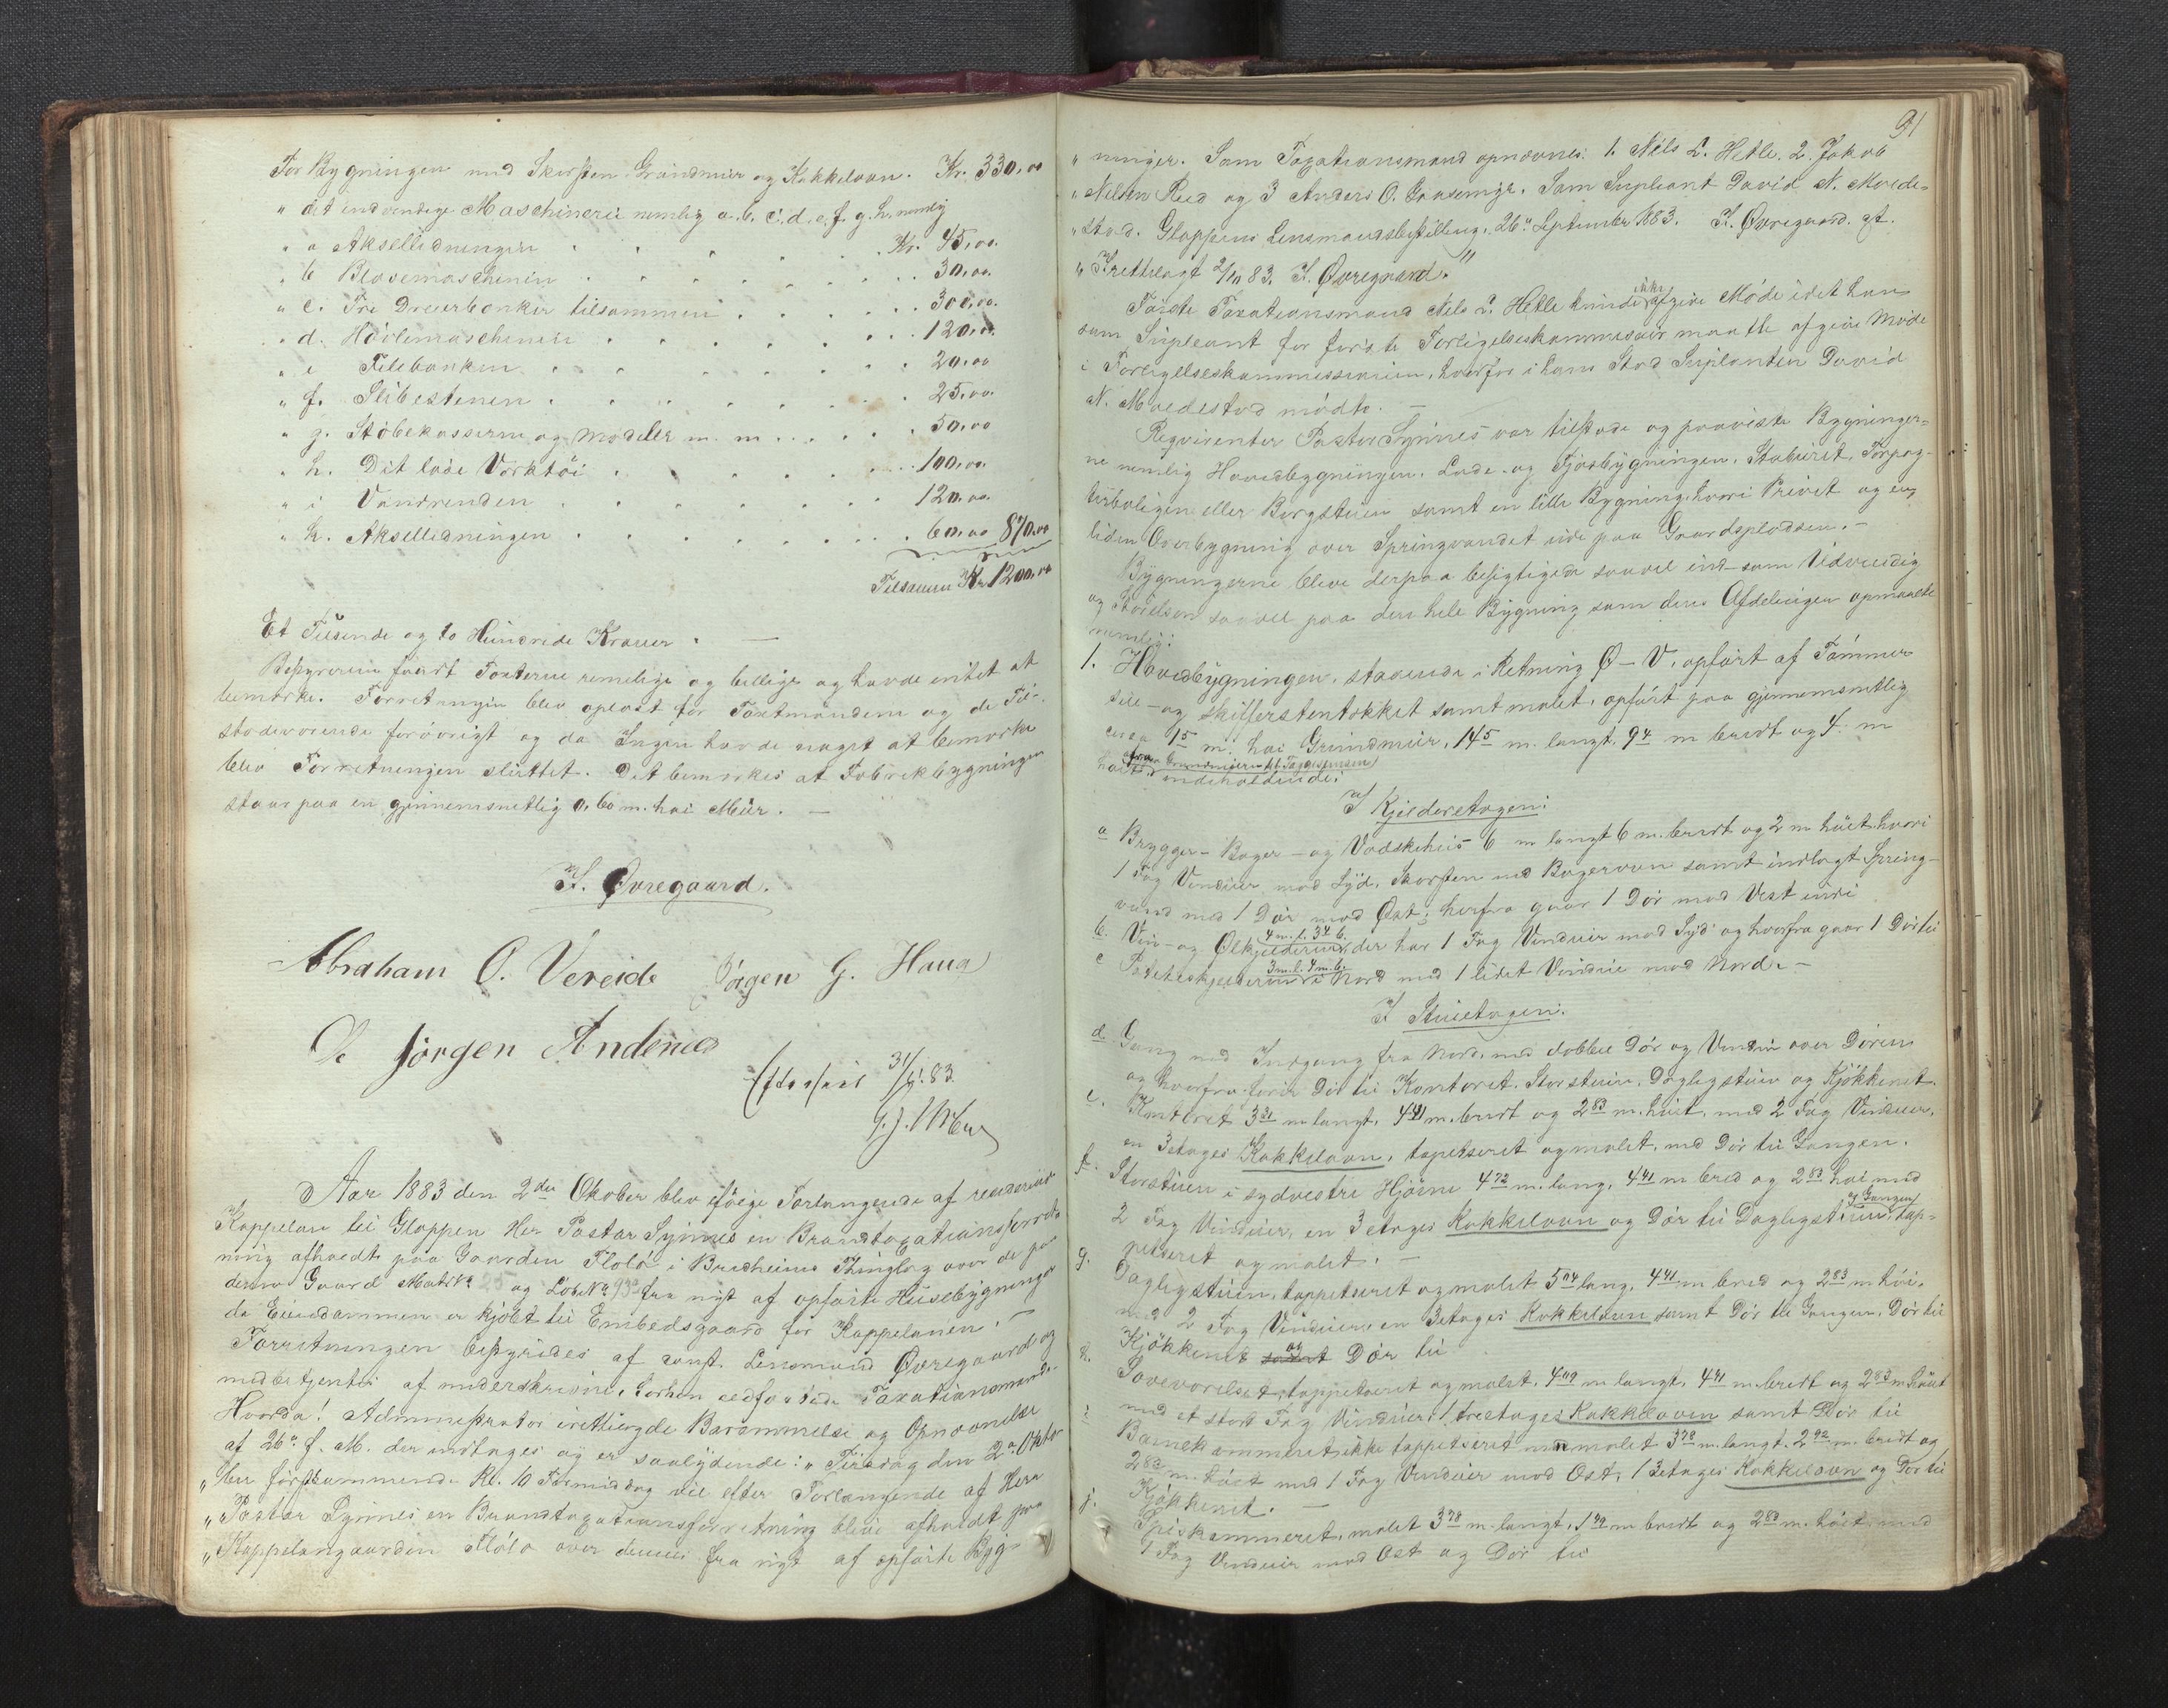 For Bygningen med Skorsten Grundmur og Kakkelovn. Kr. 330,00
" det indvendige Maschineri nemlig a. b. c. d. e. f. g. h. nemlig
" a Aksellidningen . . . . Kr. 45,00.
" b Blæsemaschinen . . . . 30,00.
" c. Tre Dreierbænker tilsammen . . . . 300,00.
" d. Hövlemaschinen . . . . 120,00.
" e Filebænken . . . . 20,00
" f. Slibestenen . . . . 25,00.
" g. Stöbekasserne og Modeller m. m. . . . 50,00
" h. Det löse Værktöi . . . . 100,00.
" i Vandrenden . . . . 120,00.
" k. Aksellidningen . . . . 60,00 870,00
Tilsammen Kr 1200,00
Et Tusende og to Hundride Kroner. —
Bestyreren fandt Taxterne rimelige og billige og havde intet at
bemærke. Forretningen blev oplæst for Taxtmændene og de Til-
stedeværende forövrigt og da Ingen havde noget at bemærke
blev Forretningen sluttet. Det bemærkes at Fabrikbygningen
staar paa en gjennemsnitlig 0,60 m. höi Muur. —
I. Øvregaard.
Abraham O. Vereide Jörgen G. Haug
Jörgen Andenæs
Efterseet 31/12 83.
Aar 1883 den 2den Oktober blev efter Forlangende af residerende
Kappelan til Gloppen Her Pastor Synnes en Brandtaxationsforret-
ning afholdt paa Gaarden Flölo i Bredheims Thinglag over de paa
denne Gaard Matr No 25 og Löbe No 93a fra nyt af opförte Husebygninger
da Eiendommen er kjöbt til Embedsgaard for Kappelanen. —
Forretningen bestyredes af const. Lensmand Øvregaard og
medbetjentes af underskrevne, forhen edfæstede Taxationsmænd.
Hvorda! Administrator irettelagde Berammelse og Opnævnelse
af 26de f. M. der indtages og er saalydende: " Tirsdag den 2den Okto-
" ber förstkommende Kl. 10 Formiddag vil efter Forlangende af Herr
" Pastor Synnes en Brandtaxationsforretning blive afholdt paa
" Kappelangaarden Flölo over dennes fra nyt af opförte Byg-
91
" ninger. Som Taxationsmænd opnævnes: 1. Nils L. Hetle. 2. Jakob
" Nilsen Reed og 3 Anders O. Gaasemyr. Som Supleant David N. Moede-
" stad. Gloppens Lensmandsbestilling, 26de September 1883. I. Øvregaard. cst.
" Irettelagt 2/10 83. I. Øvregaard."
Förste Taxationsmand Nils L. Hetle kunde ikke afgive Möde idet han
som Supleant for förste Forligelseskommisair maatte afgive Möde
i Forligelseskommissionen, hvorfor i hans Sted Suplanten David
N. Moedestad mödte. —
Reqvirenten Pastor Synnes var tilstede og paaviste Bygninger-
ne nemlig Hovedbygningen, Lade- og Fjösbygningen, Stabüret, Forpag-
terboligen eller Borgstuen samt en lille Bygning hvori Privet og en
liden Overbygning over Springvandet ude paa Gaardspladsen. —
Bygningerne bleve derpaa besigtigede saavel ind- som Udvendig
og Störelsen saavel paa den hele Bygning som dens Afdelinger opmaalte
nemlig:
1. Hovedbygningen, staaende i Retning Ø – V, opfört af Tömmer
og skifferstentækket samt malet, opfört paa gjennemsnitlig
circa 1 5 m. höi Grundmur, 14 5 m. langt, 9 4 m bredt og 4 m
höit fra Grundmuren til Taggesimsen indeholdende:
I Kjelderetagen:
a Brygger- Bager- og Vadskehus 6 m langt 6 m. bredt og 2 m höit, hvori
1 Fag Vinduer mod Syd, Skorsten med Bagerovn samt indlagt Spring-
vand med 1 Dör mod Öst; herfra gaar 1 Dör mod Vest indi
b. Vin- og Ölkjelderen 4 m. l. 3 4 b. der har 1 Fag Vinduer mod Syd og hvorfra gaar 1 Dör til
c Poteteskjelderen 3 m. l. 4 m. b. i Nord med 1 lidet Vindue mod Nord. —
I Stuetagen.
d. Gang med Indgang fra Nord, med dobbel Dör og Vindue over Dören
og hvorfra förer Dör til Kontoret, Storstuen, Dagligstuen og Kjökkenet.
e. Kontoret 3 31 m langt, 4 41 m. bredt og 2 83 m. höit, med 2 Fag Vinduer,
en 3etages Kakkelovn, tapetseret og malet, med Dör til Gangen.
f. Storstuen i sydvestre Hjörne 4 72 m. lang, 4 41 m. bred og 2 83 höi med
2 Fag Vinduer, en 3 etages Kakkelovn og Dör til Dagligstuen og Gangen, tap-
petseret og malet. —
g. Dagligstuen, tappetseret og malet 5 04 lang, 4 41 m bred og 2 83 m höi.
med 2 Fag Vinduer, en 3etages Kakkelovn samt Dör til Gangen, Dör til
Kjökkenet samt og Dör til
h. Soveværelset, tappetseret og malet, 4 09 m langt, 4 41 m bredt og 2 83 m höit
med et stort Fag Vinduer, 1 treetages Kakkelovn samt Dör til
i Barnekammeret, ikke tappetseret men malet 3 78 m. langt, 2 92 m. bredt og
2 83 m. höit med 1 Fag Vinduer mod Ost, 1 3etages Kakkelovn og Dör til
Kjökkenet. —
j. Spiskammeret, malet 3 78 m langt, 1 42 m bredt og 2 83 m. höit med
1 Fag Vinduer mod Ost og Dör til